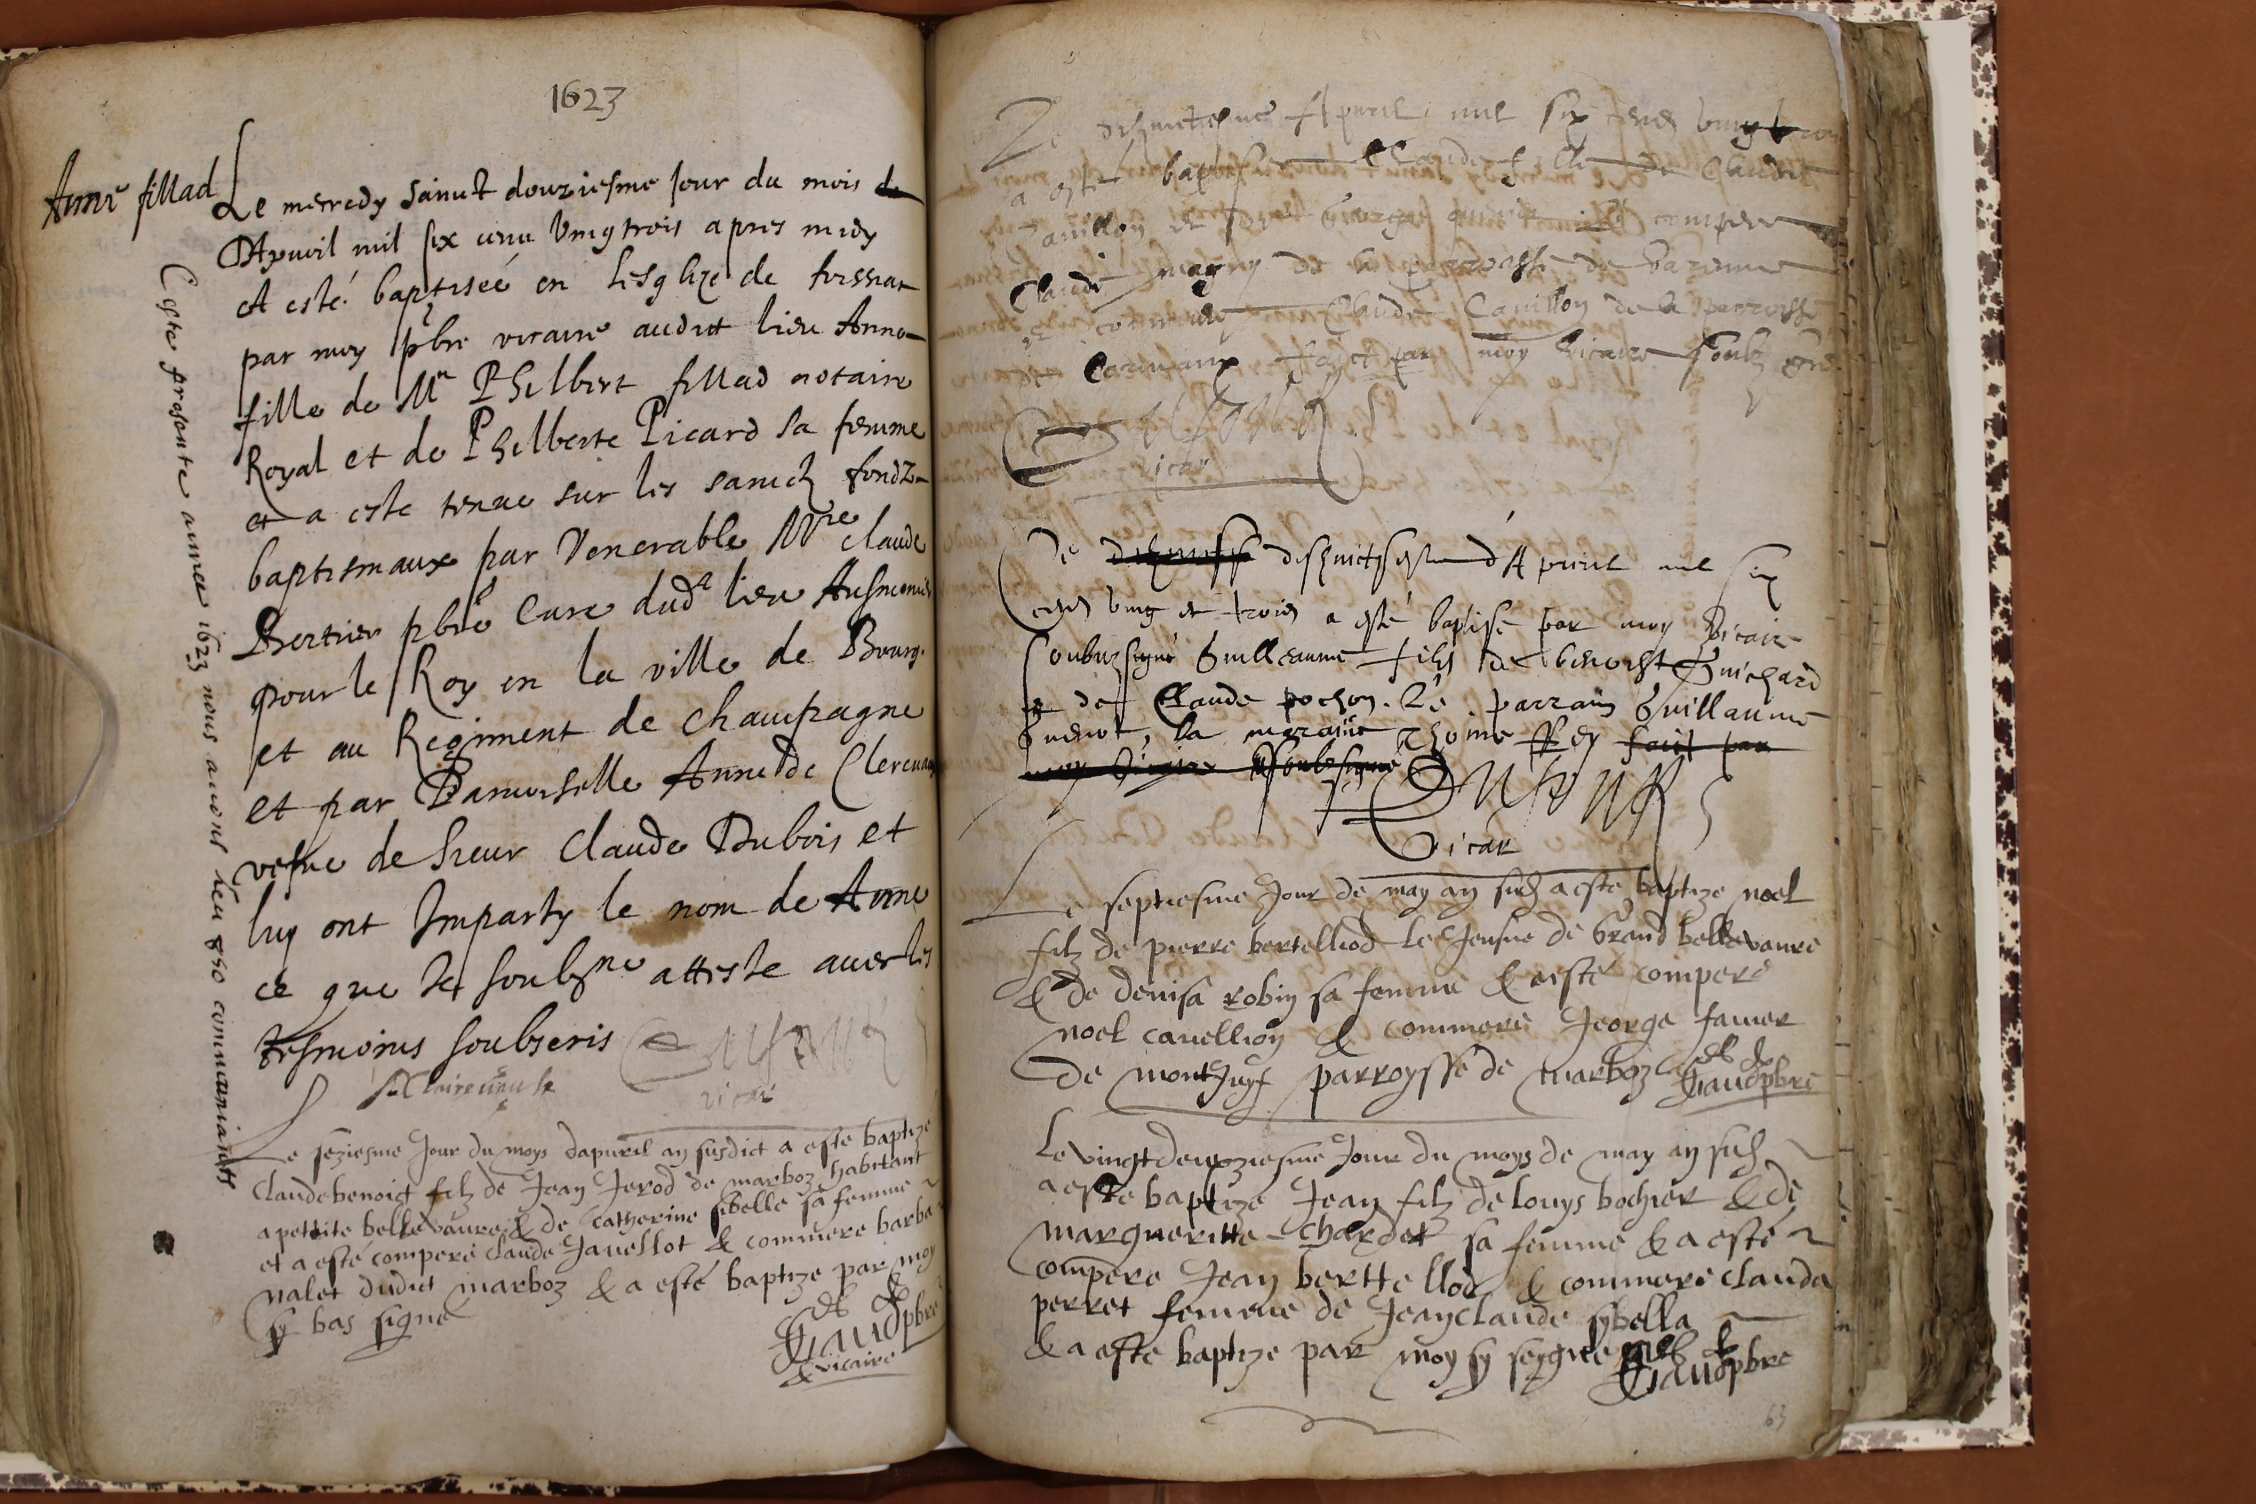 1623
Anne fillad
Le mecredy sainct douziesme Jour du mois de
D'Apuril mil six cens vingtrois apres midy
A esté baptisée en lesglize de foissiat
par moy pbre vicaire audict lieu Anne
fille de Mr Philbert fillad notaire
Royal et de Philberte Picard sa femme
et a este tenue sur les sainctz fondz
baptismaux par Venerable Mre claude
Bertier pbre Cure dudt lieu Ausmonier
pour le Roy en la ville de Bourg
et au Regiment de champagne
et par Damoiselle Anne de Clerevaux
vefve de sieur Claude Dubois et
luy ont Imparty le nom de Anne
ce que Je soubzne atteste avec les
tesmoins soubscris
vicai
Ceste presente annee 1623 nous avons heu 850 communiants
Le sèziesme Jour du moys dapuril an susdict a este baptize
Claude benoict filz de Jean Jerod de marboz habitant
a pettite belle vavre & de Catherine sibelle sa femme
et a esté compere claude Javellot & commere barba
nalet dudict marboz & a esté baptize par moy
sy bas signé
Gaud pbre
& vicaire
Le dixhuictiesme Apuril mil six cens vingt trois
a esté baptisée Claude fille de Claude
Cavillon et de compere
Claude magny de la parroisse de
et commere Claude Cavillon de la parroisse
de faict par moy vicaire soubzsigné
Dufour
vicar
Le dixhuictiesme d'Apuril mil six
cens vingt et trois a esté baptisé par moy vicaire
soubzsigné Guilleaume filz de benoist Guichard
et de Claude pochon. Le parrain Guillaume
Guenot, la marainne Thoine Rey faict par
moy vicaire soubzsigné
Dufour
Vicar
Le septiesme Jour de may an susd a este baptize noel
filz de pierre bertelliod le Jeusne de Grand bellevavre
& de denisa robin sa femme & a esté compere
noel cavellion & commere Jeorge favier
de montJuyf parroysse de marboz
Gaud pbre
Le vingtdeuxiesme Jour du moys de may an susd
a este baptize Jean filz de louys bochier & de
margueritte chardet sa femme & a esté
compere Jean berttelliod & commere clauda
perret femme de Jeanclaude sybella
& a esté baptize par moy sy seygne
Gaud pbre
63